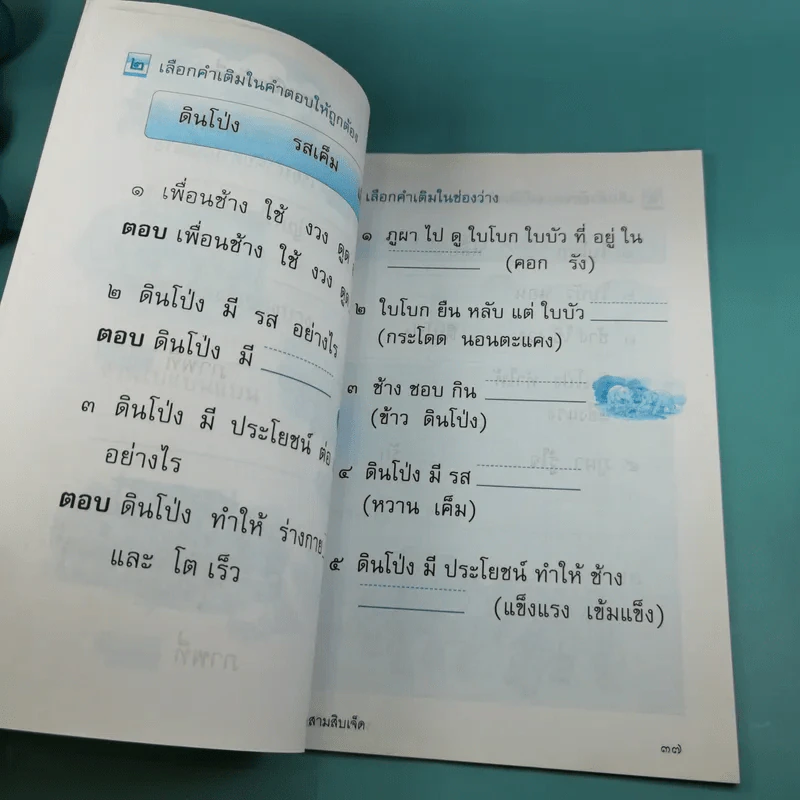 ๒ เลือกคำเติมในคำตอบให้ถูกต้อง
ดินโป่ง รสเค็ม
๑ เพื่อนช้าง ใช้ งวง ดูด
ตอบ เพื่อนช้าง ใช้ งวง ดูด
๒ ดินโป่ง มี รส อย่างไร
ตอบ ดินโป่ง มี
๓ ดินโป่ง มี ประโยชน์ ต่อ
อย่างไร
ตอบ ดินโป่ง ทำให้ ร่างกาย
และ โต เร็ว
เลือกคำเติมในช่องว่าง
๑ ภูผา ไป ดู ใบโบก ใบบัว ที่ อยู่ ใน
(คอก รัง)
๒ ใบโบก ยืน หลับ แต่ ใบบัว
(กระโดด นอนตะแคง)
๓ ช้าง ชอบ กิน
(ข้าว ดินโป่ง)
๔ ดินโป่ง มี รส
(หวาน เค็ม)
๕ ดินโป่ง มี ประโยชน์ ทำให้ ช้าง
(แข็งแรง เข้มแข็ง)
สามสิบเจ็ด
๓๗